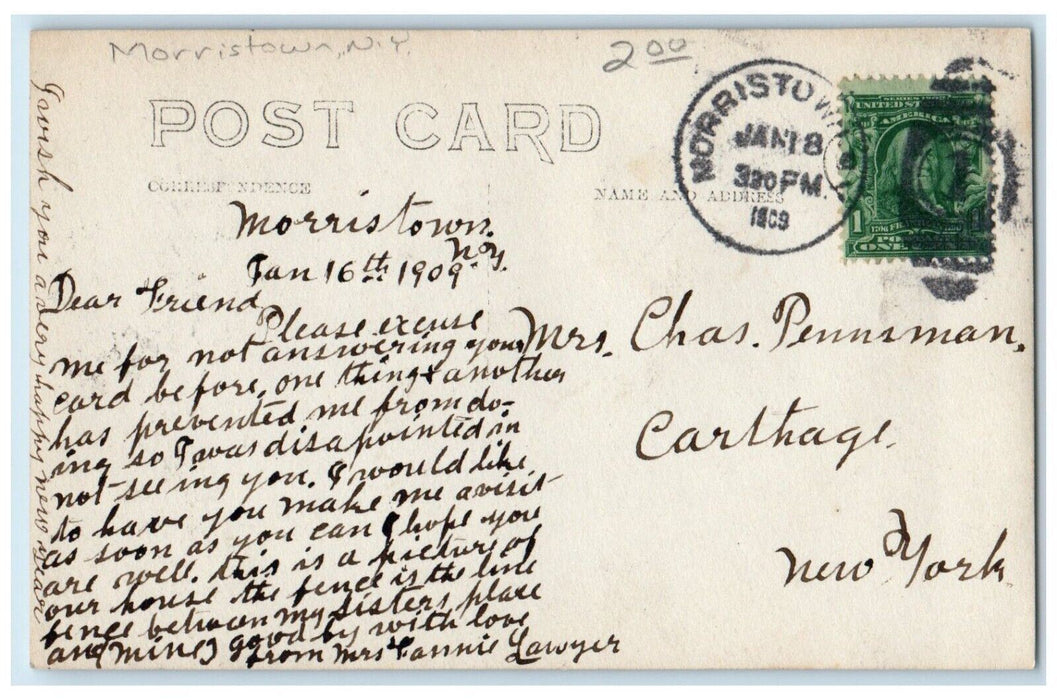 Morristown, N.Y.
2.00
POST CARD
CORRESPONDENCE
NAME AND ADDRESS
MORRISTOWN
JAN 18
330 PM
1909
SERIES 1902
UNITED STATES
AMERICA
1
ONE
Morristown.
N.Y.
Jan 16th 1909
Dear Friend
Please excuse
me for not answering your
card before, one thing & another
has prevented me from do-
ing so I was disapointed in
not seeing you. I would like
to have you make me a visit
as soon as you can I hope you
are well. this is a picture of
our house the fence is the line
fence between my sisters place
and (mine) good by with love
from Mrs Fannie Lawyer
I wish you a very happy new year
Mrs. Chas. Pennsman.
Carthage.
New York